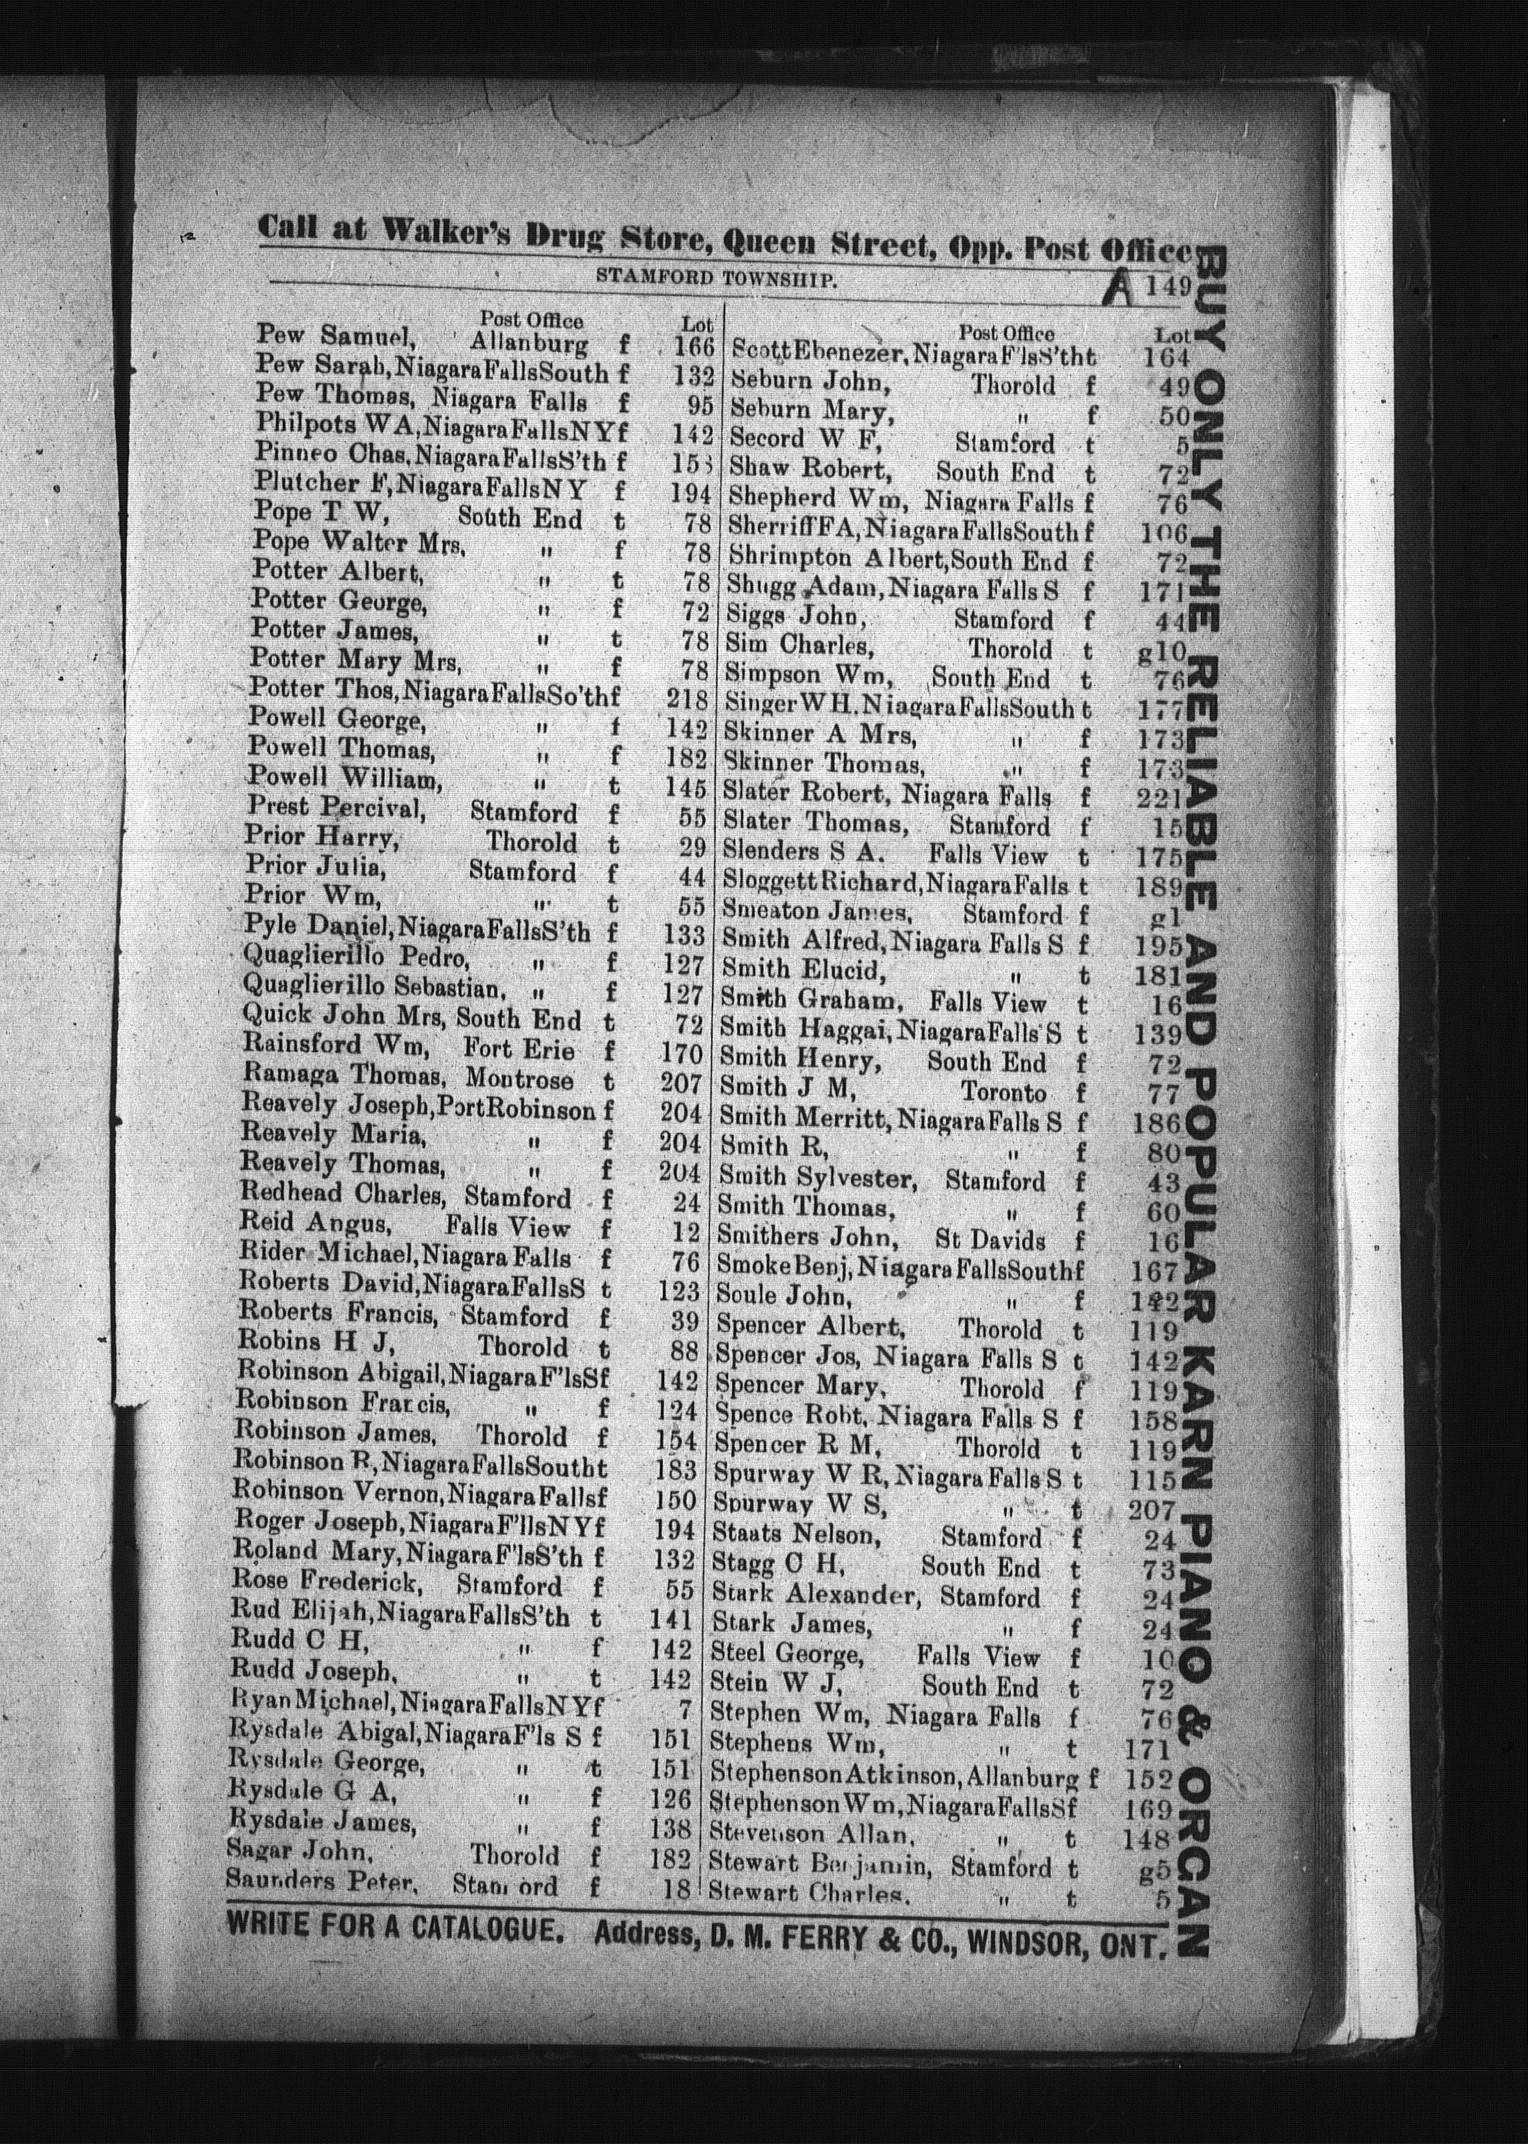 Call at Walker's Drug Store, Queen Street, Opp. Post Office
STAMFORD TOWNSHIP. A 149
Post Office Lot
Pew Samuel, Allanburg f 166
Pew Sarah, Niagara Falls South f 132
Pew Thomas, Niagara Falls f 95
Philpots W A, Niagara Falls N Y f 142
Pinneo Chas, Niagara Falls S'th f 153
Plutcher F, Niagara Falls N Y f 194
Pope T W, South End t 78
Pope Walter Mrs, " f 78
Potter Albert, " t 78
Potter George, " f 72
Potter James, " t 78
Potter Mary Mrs, " f 78
Potter Thos, Niagara Falls So'th f 218
Powell George, " f 142
Powell Thomas, " f 182
Powell William, " t 145
Prest Percival, Stamford f 55
Prior Harry, Thorold t 29
Prior Julia, Stamford f 44
Prior Wm, " t 55
Pyle Daniel, Niagara Falls S'th f 133
Quaglierillo Pedro, " f 127
Quaglierillo Sebastian, " f 127
Quick John Mrs, South End t 72
Rainsford Wm, Fort Erie f 170
Ramaga Thomas, Montrose t 207
Reavely Joseph, Port Robinson f 204
Reavely Maria, " f 204
Reavely Thomas, " f 204
Redhead Charles, Stamford f 24
Reid Angus, Falls View f 12
Rider Michael, Niagara Falls f 76
Roberts David, Niagara Falls S t 123
Roberts Francis, Stamford f 39
Robins H J, Thorold t 88
Robinson Abigail, Niagara F'ls S f 142
Robinson Francis, " f 124
Robinson James, Thorold f 154
Robinson R, Niagara Falls South t 183
Robinson Vernon, Niagara Falls f 150
Roger Joseph, Niagara F'lls N Y f 194
Roland Mary, Niagara F'ls S'th f 132
Rose Frederick, Stamford f 55
Rud Elijah, Niagara Falls S'th t 141
Rudd C H, " f 142
Rudd Joseph, " t 142
Ryan Michael, Niagara Falls N Y f 7
Rysdale Abigal, Niagara F'ls S f 151
Rysdale George, " t 151
Rysdale G A, " f 126
Rysdale James, " f 138
Sagar John, Thorold f 182
Saunders Peter, Stam ord f 18
Post Office Lot
Scott Ebenezer, Niagara F'ls S'th t 164
Seburn John, Thorold f 49
Seburn Mary, " f 50
Secord W F, Stamford t 5
Shaw Robert, South End t 72
Shepherd Wm, Niagara Falls f 76
Sherriff F A, Niagara Falls South f 106
Shrimpton Albert, South End f 72
Shugg Adam, Niagara Falls S f 171
Siggs John, Stamford f 44
Sim Charles, Thorold t g10
Simpson Wm, South End t 76
Singer W H. Niagara Falls South t 177
Skinner A Mrs, " f 173
Skinner Thomas, " f 173
Slater Robert, Niagara Falls f 221
Slater Thomas, Stamford f 15
Slenders S A. Falls View t 175
Sloggett Richard, Niagara Falls t 189
Smeaton James, Stamford f g1
Smith Alfred, Niagara Falls S f 195
Smith Elucid, " t 181
Smith Graham, Falls View t 16
Smith Haggai, Niagara Falls S t 139
Smith Henry, South End f 72
Smith J M, Toronto f 77
Smith Merritt, Niagara Falls S f 186
Smith R, " f 80
Smith Sylvester, Stamford f 43
Smith Thomas, " f 60
Smithers John, St Davids f 16
Smoke Benj, Niagara Falls South f 167
Soule John, " f 142
Spencer Albert, Thorold t 119
Spencer Jos, Niagara Falls S t 142
Spencer Mary, Thorold f 119
Spence Robt, Niagara Falls S f 158
Spencer R M, Thorold t 119
Spurway W R, Niagara Falls S t 115
Spurway W S, " t 207
Staats Nelson, Stamford f 24
Stagg C H, South End t 73
Stark Alexander, Stamford f 24
Stark James, " f 24
Steel George, Falls View f 10
Stein W J, South End t 72
Stephen Wm, Niagara Falls f 76
Stephens Wm, " t 171
Stephenson Atkinson, Allanburg f 152
Stephenson Wm, Niagara Falls S f 169
Stevenson Allan, " t 148
Stewart Benjamin, Stamford t g5
Stewart Charles, " t 5
WRITE FOR A CATALOGUE. Address, D. M. FERRY & CO., WINDSOR, ONT.
BUY ONLY THE RELIABLE AND POPULAR KARN PIANO & ORGAN